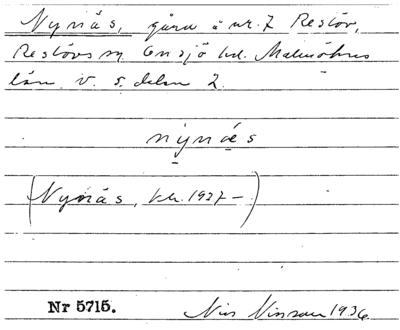 Nynäs, gård å nr. 7 Restöv,
Restövs sn Onsjö hd. Malmöhus
län. V. s. delen 2.
nynäs
(Nynäs, kh. 1937 –)
Nr 5715.
Nils Nilsson 1936.